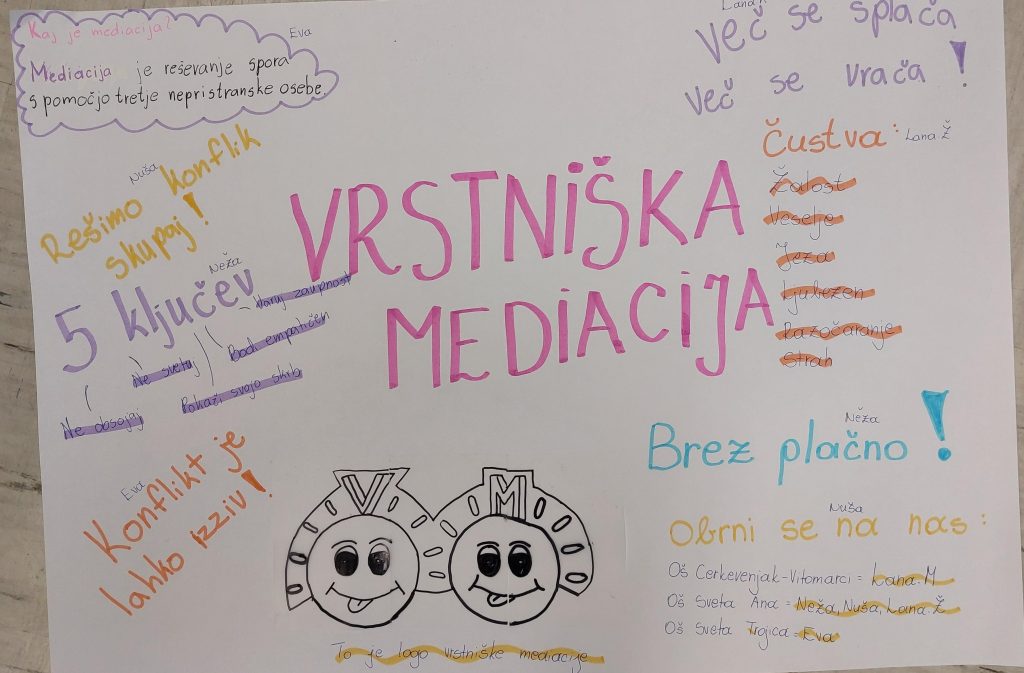 Kaj je mediacija?
Eva
Mediacija je reševanje spora
s pomočjo tretje nepristranske osebe.
Lana
Več se splača
več se vrača!
Nuša
Rešimo konflik
skupaj!
VRSTNIŠKA
MEDIACIJA
Čustva:
Lana Ž
Žalost
Veselje
Jeza
Ljubezen
Razočaranje
Strah
Neža
5 ključev
Varuj zaupnost
Bodi empatičen
Ne svetuj
Pokaži svojo skrb
Ne obsojaj
Neža
Brez plačno!
Eva
Konflikt je
lahko izziv!
V M
To je logo vrstniške mediacije
Nuša
Obrni se na nas:
Oš Cerkevenjak-Vitomarci = Lana.M
Oš Sveta Ana = Neža, Nuša, Lana.Ž
Oš Sveta Trojica = Eva